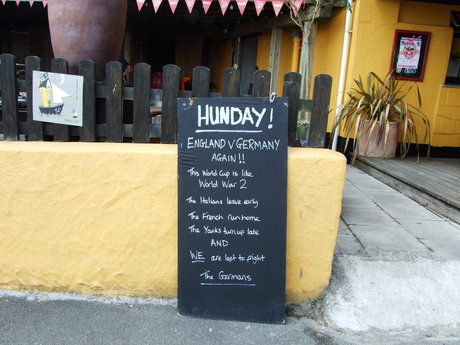 HUNDAY!
ENGLAND V GERMANY
AGAIN!!
This World Cup is like
World War 2
The Italians leave early
The French run home
The Yanks turn up late
AND
WE are left to fight
The Germans